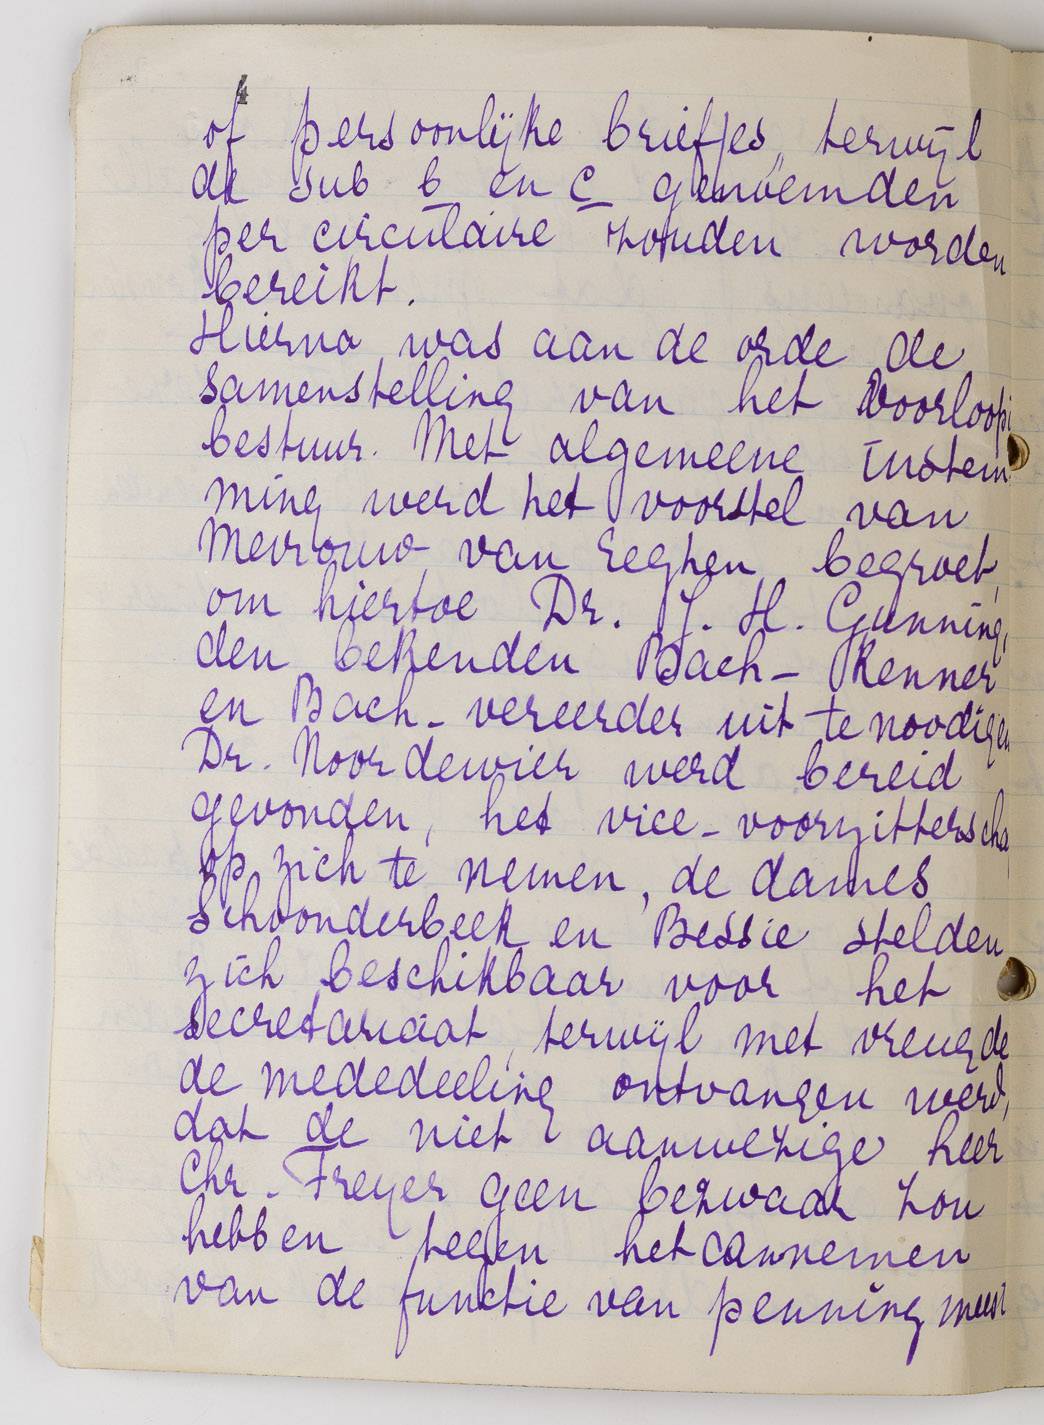 4
of persoonlijke briefjes, terwijl
de sub b en c genoemden
per circulaire zouden worden
bereikt.
Hierna was aan de orde de
samenstelling van het voorloopi
bestuur. Met algemeene instem
ming werd het voorstel van
Mevrouw van Eeghen begroet,
om hiertoe Dr. J. H. Gunning,
den bekenden Bach-Kenner
en Bach-vereerder uit te noodigen
Dr. Noordewier werd bereid
gevonden, het vice-voorzitterscha
op zich te nemen, de dames
Schoonderbeek en Bessie stelden
zich beschikbaar voor het
secretariaat, terwijl met vreugde
de mededeeling ontvangen werd,
dat de niet aanwezige heer
Chr. Freyer geen bezwaar zou
hebben tegen het aannemen
van de functie van penningmeest